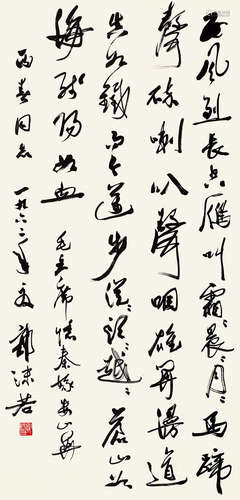 西風烈長空雁叫霜〻晨〻月〻馬蹄
聲碎喇叭聲咽雄關漫道
真如鐵而今邁步從〻頭〻越〻蒼山如
海殘陽如血 毛主席憶秦娥婁山關
同志 一九六二年夏 郭沫若